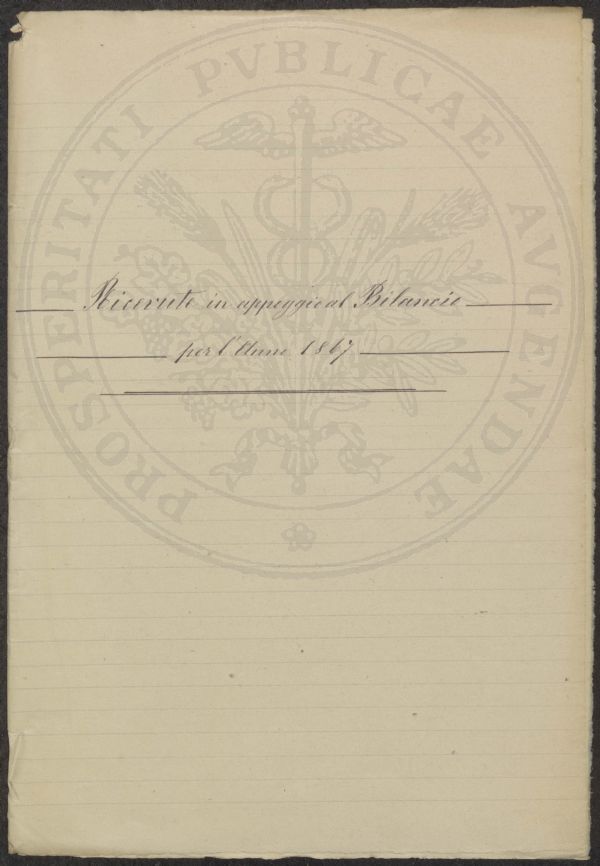 PROSPERITATI PVBLICAE AVGENDAE
Ricevute in appoggio al Bilancio
per l'Anno 1867